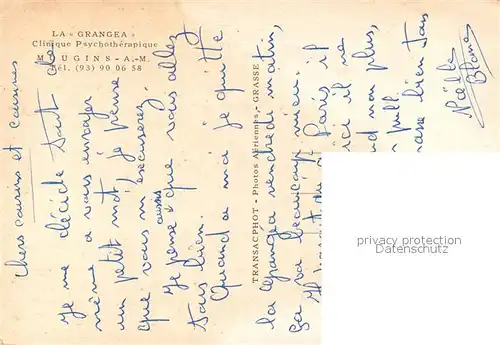 LA « GRANGEA »
Clinique Psychothérapique
MOUGINS - A.-M.
Tél. (93) 90 06 58
TRANSACPHOT - Photos Aériennes - GRASSE
chers cousins et cousines
Je me décide tout de
même a vous envoyer
un petit mot, je pense
que vous m'excuserez.
Je pense aussi que vous allez
tous bien.
Quand a moi je quitte
la Grangéa vendredi matin,
ça va beaucoup mieux.
Paris il
ici il ne
non plus,
pull
bien tous
Noëlle
privacy protection
Datenschutz